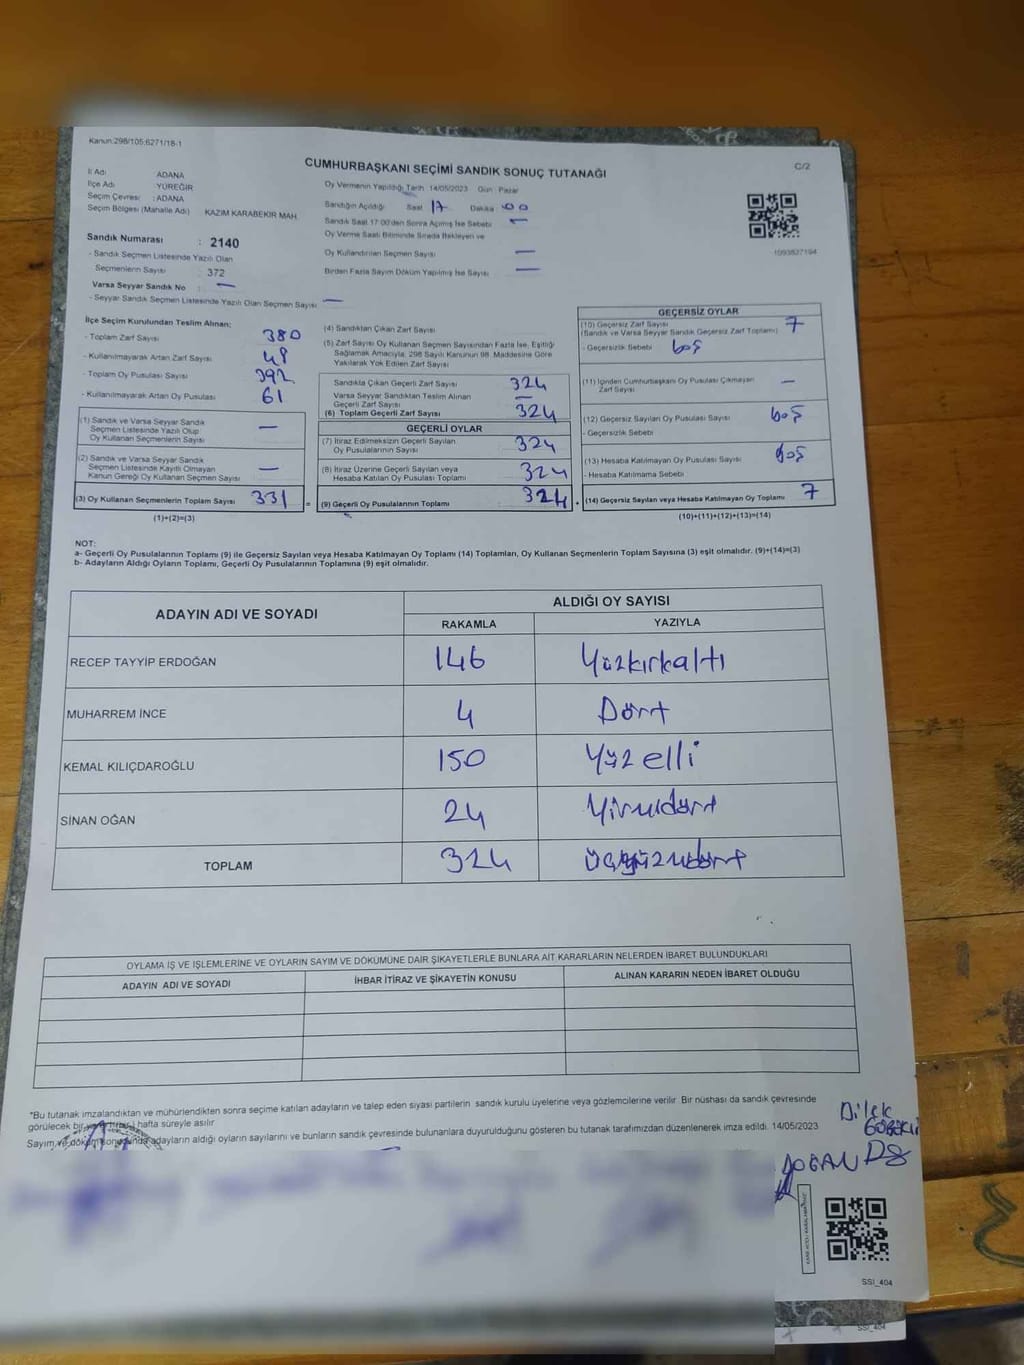 Kanun:298/105;6271/18-1
CUMHURBAŞKANI SEÇİMİ SANDIK SONUÇ TUTANAĞI
C/2
İl Adı ADANA
İlçe Adı YÜREĞİR
Seçim Çevresi : ADANA
Seçim Bölgesi (Mahalle Adı) KAZIM KARABEKİR MAH
Oy Vermenin Yapıldığı Tarih 14/05/2023 Gün : Pazar
Sandığın Açıldığı Saat 17 Dakika 00
Sandık Saat 17:00'den Sonra Açılmış İse Sebebi —
Oy Verme Saati Bitiminde Sırada Bekleyen ve
Oy Kullandırılan Seçmen Sayısı —
Birden Fazla Sayım Döküm Yapılmış İse Sayısı —
1093827194
Sandık Numarası : 2140
- Sandık Seçmen Listesinde Yazılı Olan
Seçmenlerin Sayısı : 372
Varsa Seyyar Sandık No : —
- Seyyar Sandık Seçmen Listesinde Yazılı Olan Seçmen Sayısı : —
İlçe Seçim Kurulundan Teslim Alınan:
- Toplam Zarf Sayısı 380
- Kullanılmayarak Artan Zarf Sayısı
- Toplam Oy Pusulası Sayısı 392
- Kullanılmayarak Artan Oy Pusulası 61
(1) Sandık ve Varsa Seyyar Sandık
Seçmen Listesinde Yazılı Olup
Oy Kullanan Seçmenlerin Sayısı —
(2) Sandık ve Varsa Seyyar Sandık
Seçmen Listesinde Kayıtlı Olmayan
Kanun Gereği Oy Kullanan Seçmen Sayısı —
(3) Oy Kullanan Seçmenlerin Toplam Sayısı 331 =
(1)+(2)=(3)
(4) Sandıktan Çıkan Zarf Sayısı
(5) Zarf Sayısı Oy Kullanan Seçmen Sayısından Fazla İse, Eşitliği
Sağlamak Amacıyla, 298 Sayılı Kanunun 98. Maddesine Göre
Yakılarak Yok Edilen Zarf Sayısı
Sandıkla Çıkan Geçerli Zarf Sayısı 324
Varsa Seyyar Sandıktan Teslim Alınan
Geçerli Zarf Sayısı —
(6) Toplam Geçerli Zarf Sayısı 324
GEÇERLİ OYLAR
(7) İtiraz Edilmeksizin Geçerli Sayılan
Oy Pusulasının Sayısı 324
(8) İtiraz Üzerine Geçerli Sayılan veya
Hesaba Katılan Oy Pusulası Toplamı 324
(9) Geçerli Oy Pusulalarının Toplamı 324 +
GEÇERSİZ OYLAR
(10) Geçersiz Zarf Sayısı 7
(Sandık ve Varsa Seyyar Sandık Geçersiz Zarf Toplamı)
- Geçersizlik Sebebi boş
(11) İçinden Cumhurbaşkanı Oy Pusulası Çıkmayan
Zarf Sayısı —
(12) Geçersiz Sayılan Oy Pusulası Sayısı boş
- Geçersizlik Sebebi
(13) Hesaba Katılmayan Oy Pusulası Sayısı boş
- Hesaba Katılmama Sebebi
(14) Geçersiz Sayılan veya Hesaba Katılmayan Oy Toplamı 7
(10)+(11)+(12)+(13)=(14)
NOT:
a- Geçerli Oy Pusulalarının Toplamı (9) ile Geçersiz Sayılan veya Hesaba Katılmayan Oy Toplamı (14) Toplamları, Oy Kullanan Seçmenlerin Toplam Sayısına (3) eşit olmalıdır. (9)+(14)=(3)
b- Adayların Aldığı Oyların Toplamı, Geçerli Oy Pusulalarının Toplamına (9) eşit olmalıdır.
ADAYIN ADI VE SOYADI
ALDIĞI OY SAYISI
RAKAMLA YAZIYLA
RECEP TAYYİP ERDOĞAN 146 Yüzkırkaltı
MUHARREM İNCE 4 Dört
KEMAL KILIÇDAROĞLU 150 Yüzelli
SİNAN OĞAN 24 Yirmidört
TOPLAM 324
OYLAMA İŞ VE İŞLEMLERİNE VE OYLARIN SAYIM VE DÖKÜMÜNE DAİR ŞİKAYETLERLE BUNLARA AİT KARARLARIN NELERDEN İBARET BULUNDUKLARI
ADAYIN ADI VE SOYADI İHBAR İTİRAZ VE ŞİKAYETİN KONUSU ALINAN KARARIN NEDEN İBARET OLDUĞU
*Bu tutanak imzalandıktan ve mühürlendikten sonra seçime katılan adayların ve talep eden siyasi partilerin sandık kurulu üyelerine veya gözlemcilerine verilir. Bir nüshası da sandık çevresinde
görülecek bir hafta süreyle asılır
Sayım ve döküm sonucunda adayların aldığı oyların sayılarını ve bunların sandık çevresinde bulunanlara duyurulduğunu gösteren bu tutanak tarafımızdan düzenlenerek imza edildi. 14/05/2023
Dilek
DOĞAN
SSI_404
SSI_404